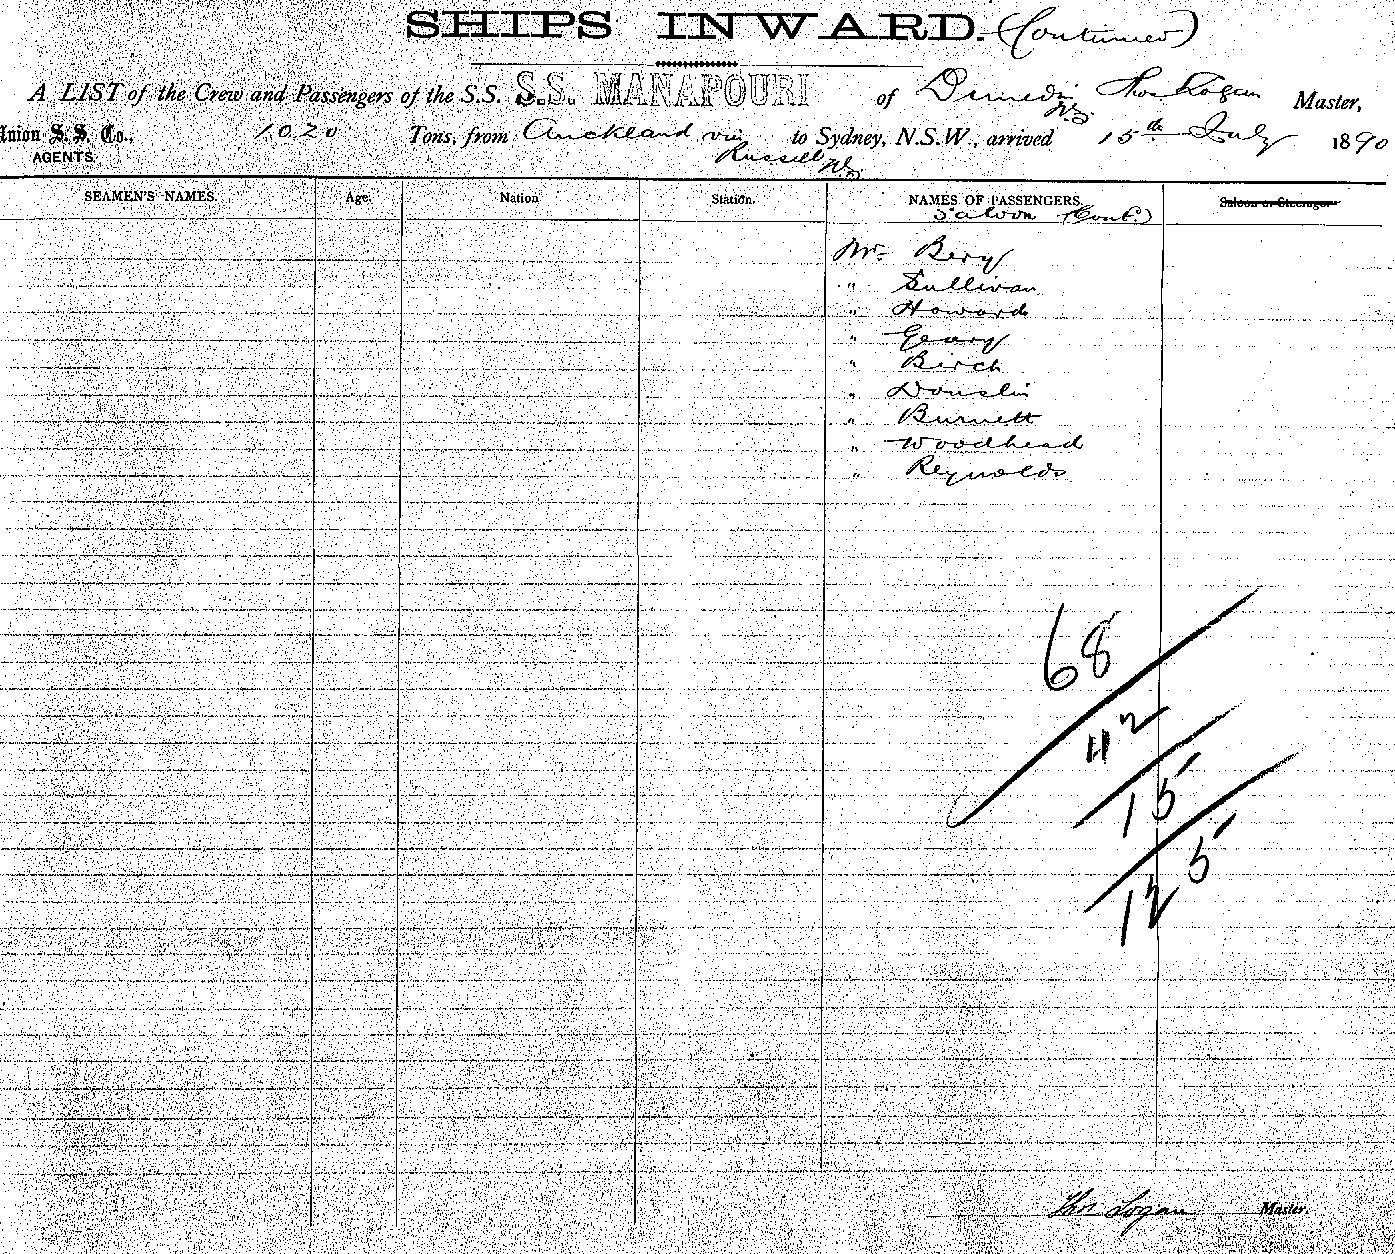 SHIPS INWARD. (Continued)
A LIST of the Crew and Passengers of the S.S. S.S. MANAPOURI of Dunedin Thos Logan Master,
NZ
Union S. S. Co., 1020 Tons, from Auckland via to Sydney, N.S.W., arrived 15th July 1890
AGENTS. Russell NZ
SEAMEN'S NAMES. Age. Nation Station. NAMES OF PASSENGERS. Saloon or Steerage
Saloon (Cont.)
Mr. Bery
" Sullivan
" Howard
" Geary
" Birch
" Douslin
" Burnett
" Woodhead
" Reynolds
68
42
15
125
Thos Logan Master.